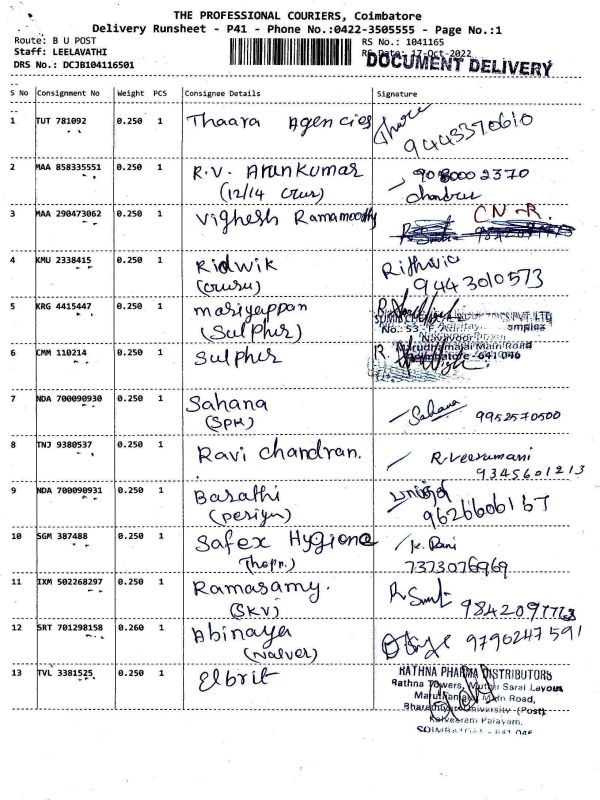 THE PROFESSIONAL COURIERS, Coimbatore
Delivery Runsheet - P41 - Phone No.:0422-3505555 - Page No.:1
Route: B U POST
RS No.: 1041165
Staff: LEELAVATHI
RS Date: 17-Oct-2022
DRS No.: DCJB104116501
DOCUMENT DELIVERY
S No Consignment No Weight PCS Consignee Details Signature
1 TUT 781092 0.250 1 Thaara Agencies
9443370610
2 MAA 858335551 0.250 1 R.V. Arunkumar 9080002370
(12/14 Chandru
3 MAA 290473062 0.250 1 Vighesh Ramamoorthy CN-R.
4 KMU 2338415 0.250 1 Ridwik
9443010573
5 KRG 4415447 0.250 1 Mariyappan
(Sulpher)
No.: 53 -
6 CMM 110214 0.250 1 Sulpher
Marudhamalai Main Road
Coimbatore - 641 046
7 NDA 700090930 0.250 1 Sahana Sahana 9952570500
(SPK)
8 TNJ 9380537 0.250 1 Ravi Chandran. R.Veeramani
9345601213
9 NDA 700090931 0.250 1 Barathi
(Periyu) 9626606167
10 SGM 387488 0.250 1 Safex Hygiene K. Rani
7373076969
11 IXM 502268297 0.250 1 Ramasamy.
(SKV)
12 SRT 701298158 0.260 1 Abinaya 9790247591
13 TVL 3381525 0.250 1 Elbrit
RATHNA PHARMA DISTRIBUTORS
Rathna Towers, Muthu Saral Layout
Maruthamalai Main Road,
Bharathiyar University (Post)
Kalveeram Palayam,
COIMBATORE - 641 046